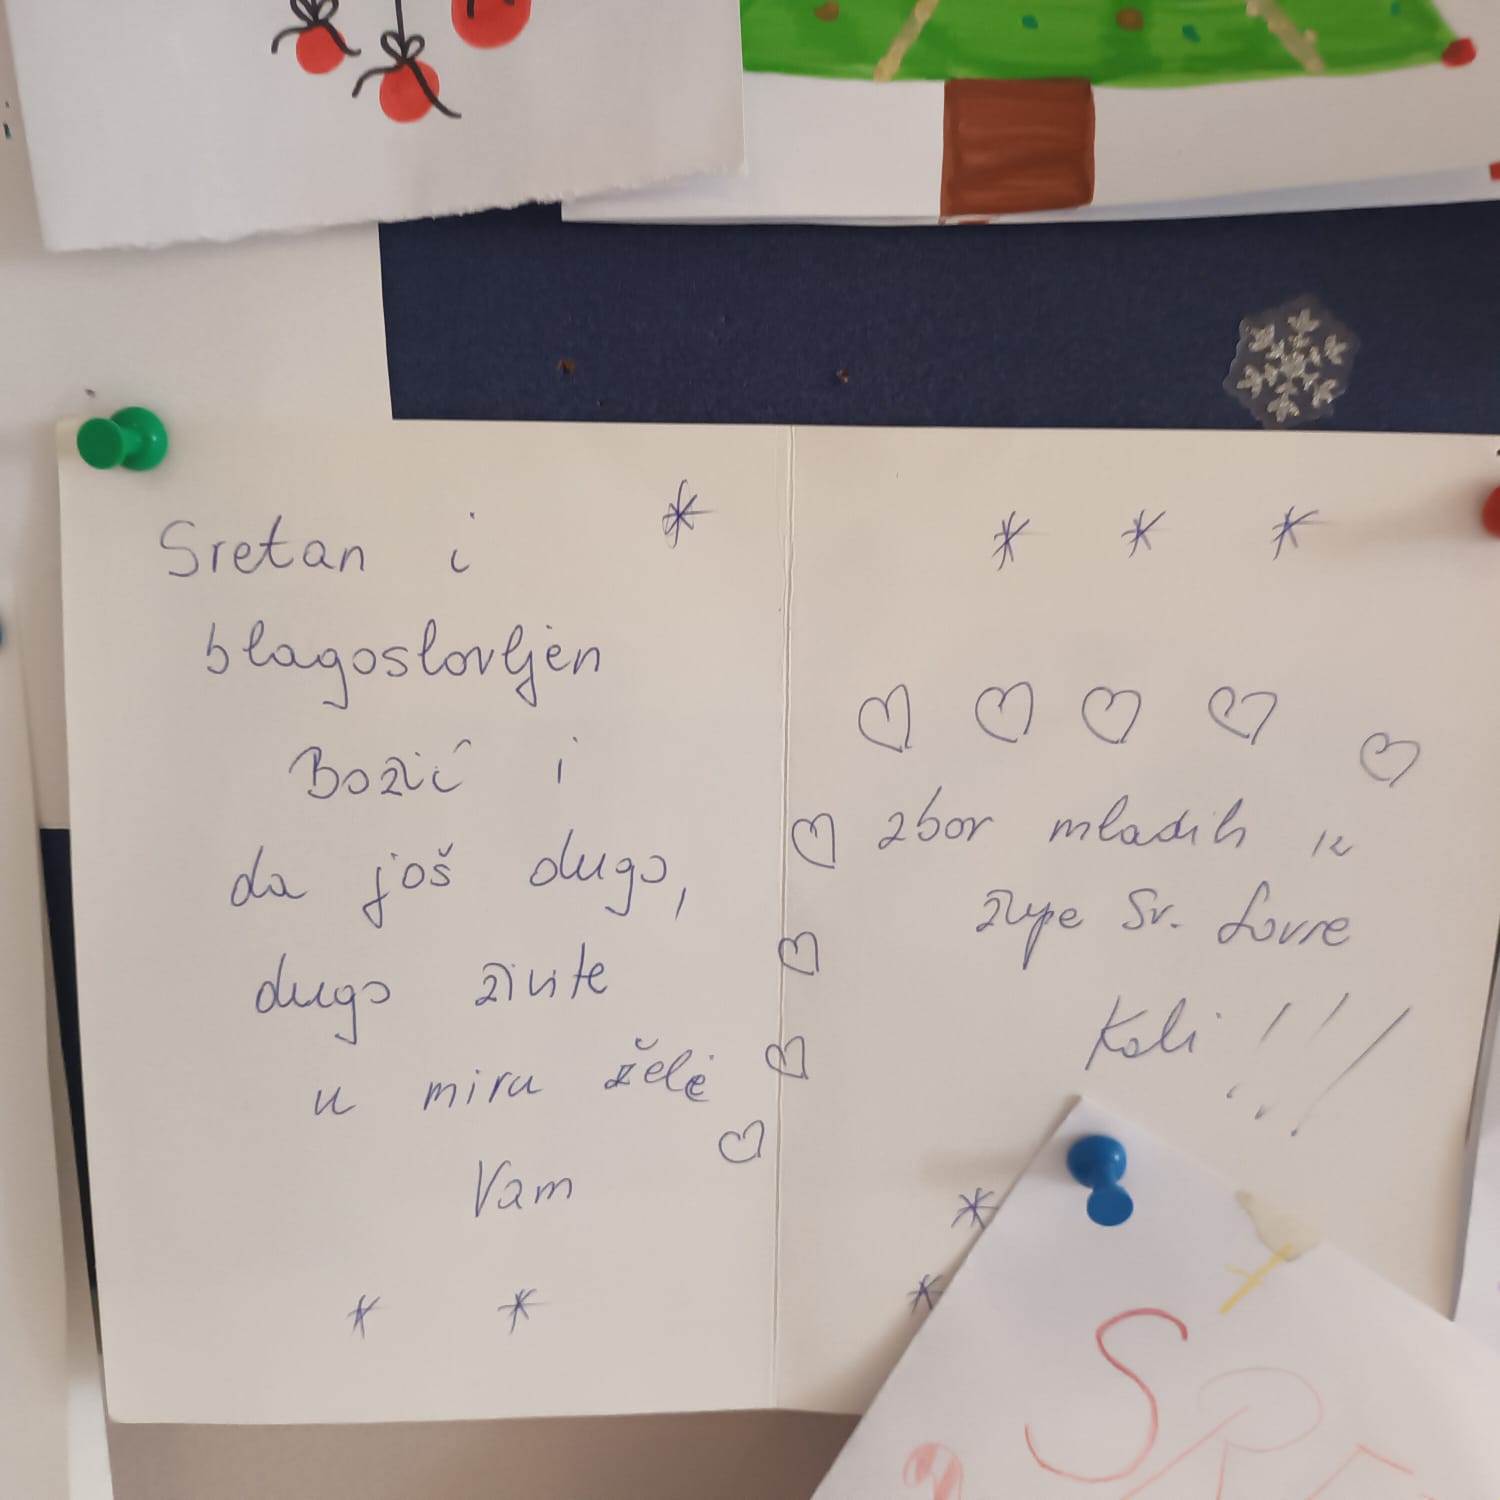 Sretan i
blagoslovljen
Božić i
da još dugo,
dugo živite
u miru žele
Vam
zbor mladih iz
župe Sv. Lovre
Kali!!!
SR